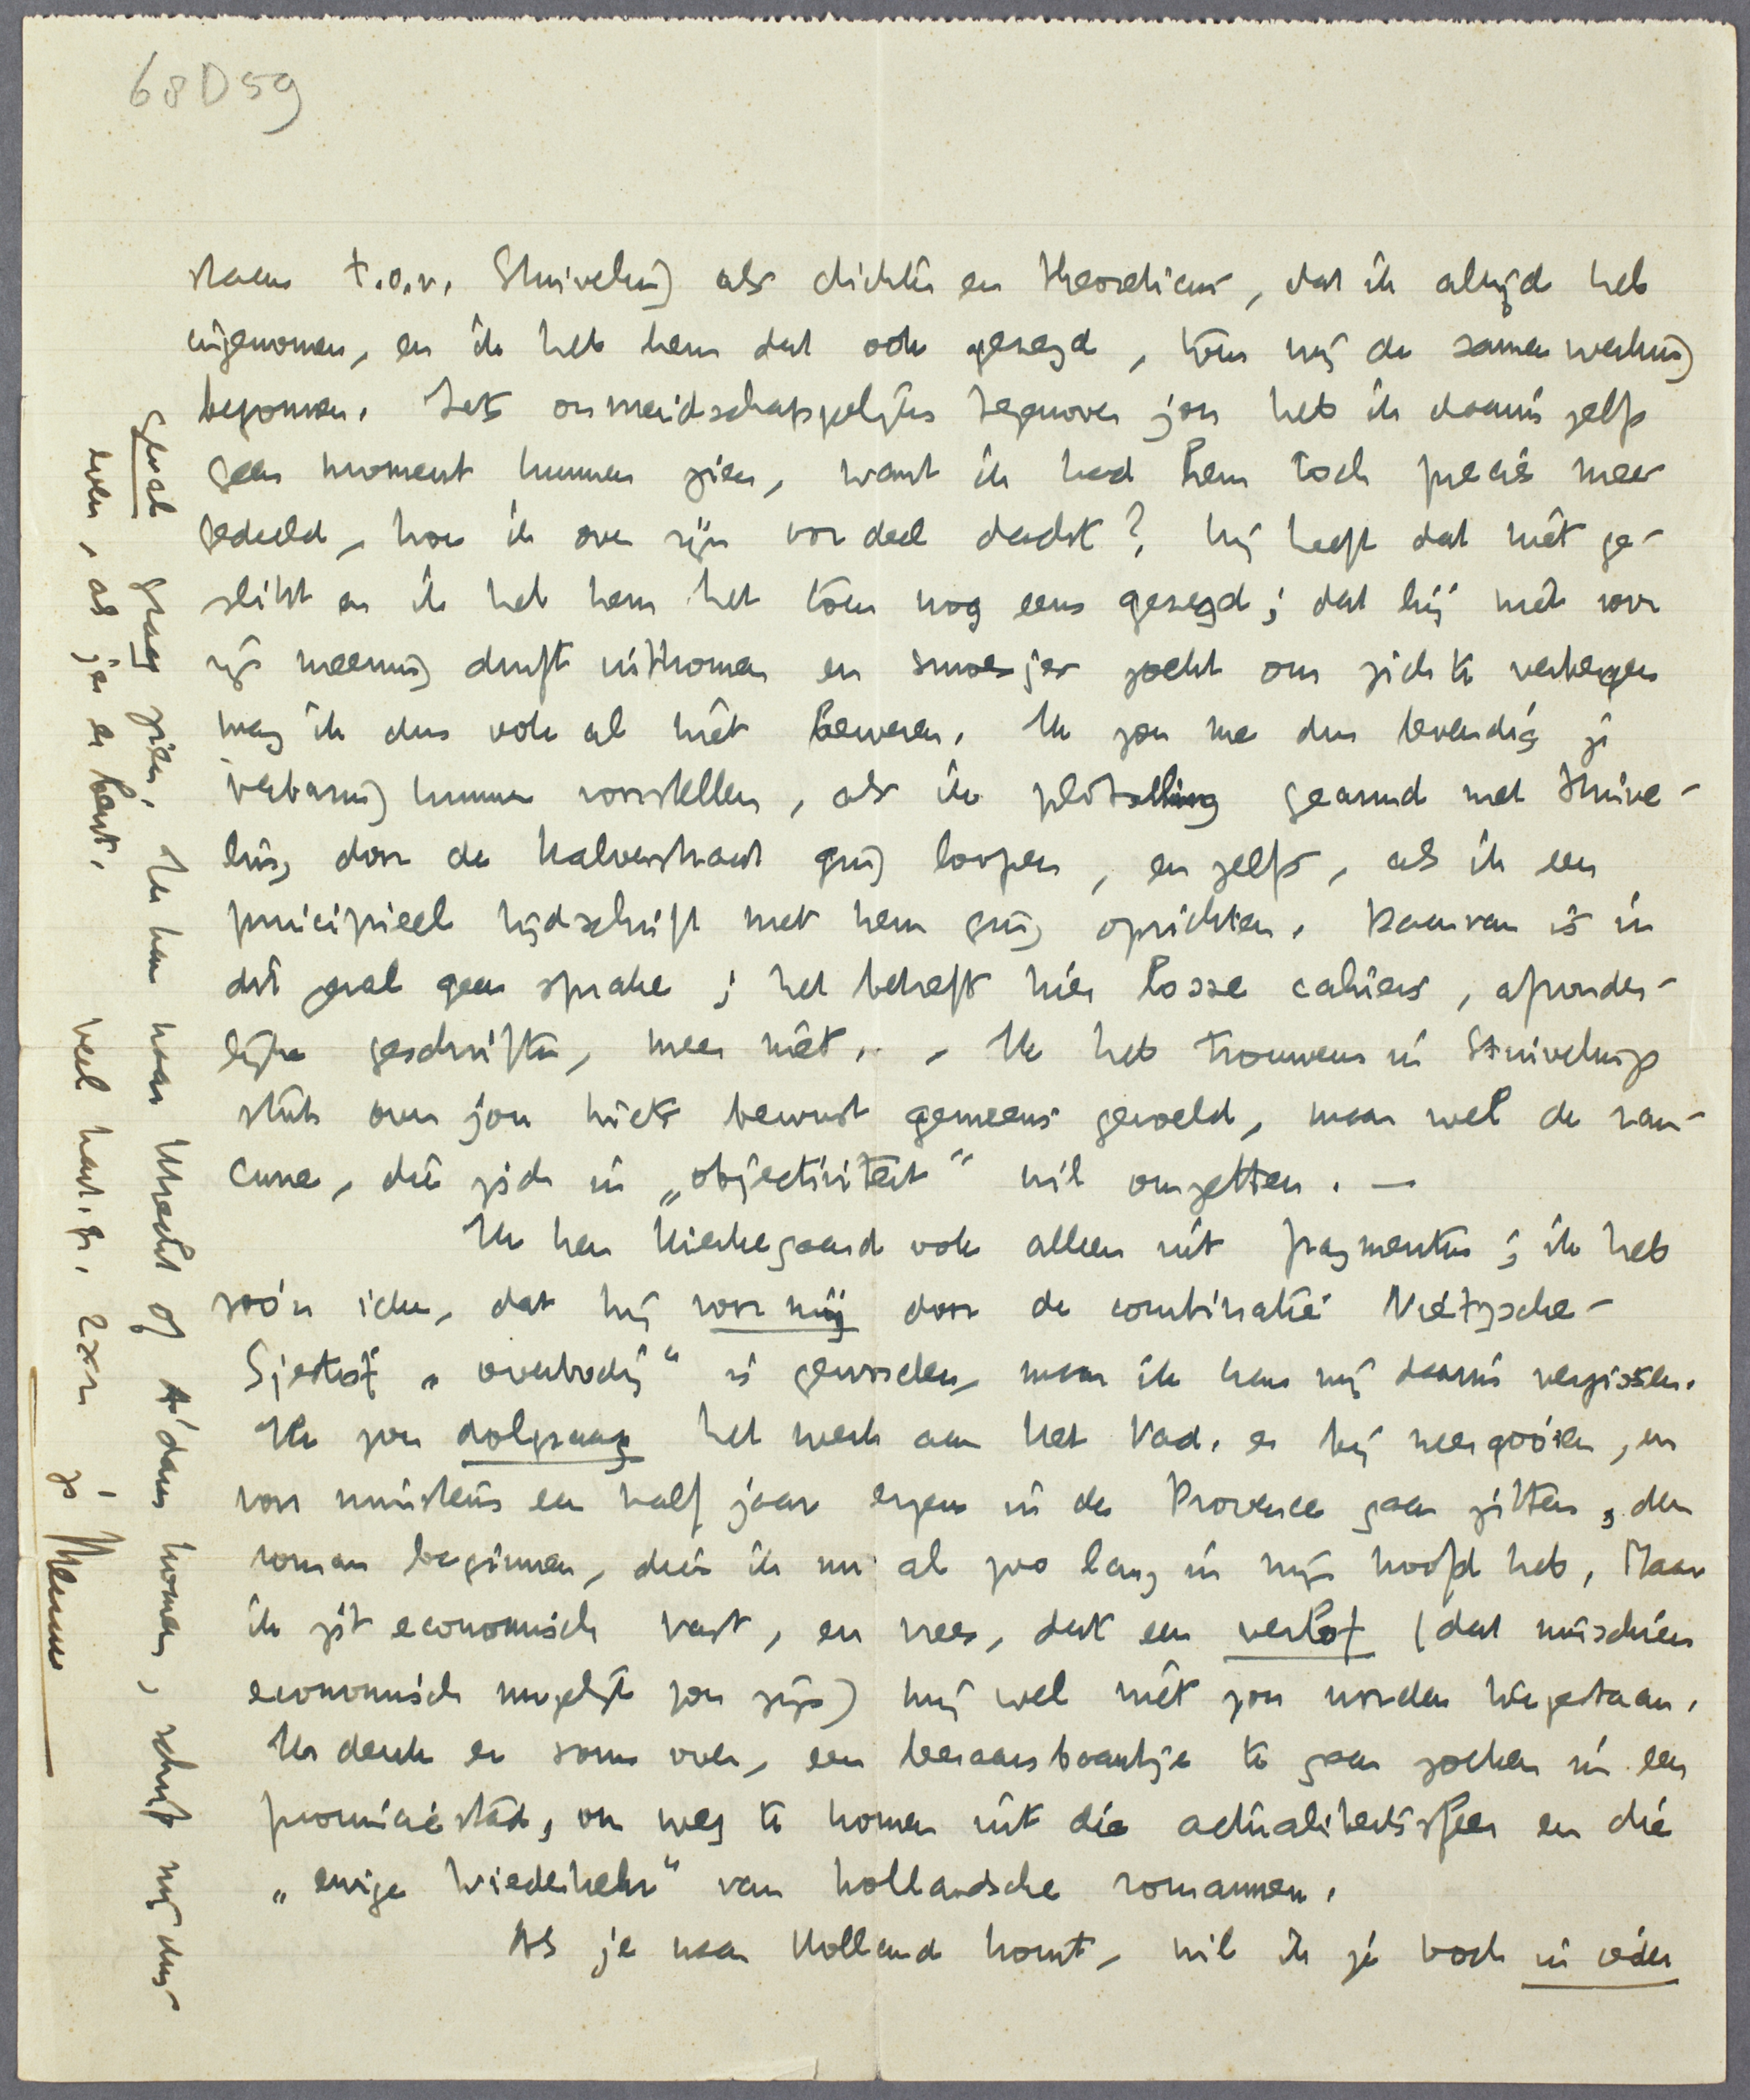 68D59
t.o.v. Stuiveling als dichter en theoreticus, dat ik altijd heb
ingenomen, en ik heb hem dat ook gezegd, toen wij de samenwerking
begonnen. Iets onvriendschappelijks tegenover jou heb ik daarin zelfs
geen moment kunnen zien, want ik had hem toch precies mee-
gedeeld, hoe ik over zijn oordeel dacht? Hij heeft dat niet ge-
slikt en ik heb hem het toen nog eens gezegd; dat hij niet voor
zijn meening durft uitkomen en smoesjes zoekt om zich te verbergen
mag ik dus ook al niet beweren. Ik zou me dus levendig je
verbazing kunnen voorstellen, als ik plotseling gearmd met Stuive-
ling door de Kalverstraat ging loopen, en zelfs, als ik een
principieel tijdschrift met hem ging oprichten. Daarvan is in
dit geval geen sprake; het betreft hier losse cahiers, afzonder-
lijke geschriften, meer niet. - Ik heb trouwens in Stuivelings
stuk over jou niets bewust gemeens gevoeld, maar wel de ran-
cune, die zich in „objectiviteit" wil omzetten. —
Ik ken Kierkegaard ook alleen uit fragmenten; ik heb
zóó'n idee, dat hij voor mij door de combinatie Nietzsche-
Sjestof „overbodig" is geworden, maar ik kan mij daarin vergissen.
Ik zou dolgraag het werk aan Het Vad. er bij neergooien, en
voor minstens een half jaar ergens in de Provence gaan zitten, den
roman beginnen, dien ik nu al zoo lang in mijn hoofd heb. Maar
ik zit economisch vast, en vrees, dat een verlof (dat misschien
economisch mogelijk zou zijn) mij wel niet zou worden toegestaan.
Ik denk er soms over, een leeraarsbaantje te gaan zoeken in een
provinciestad, om weg te komen uit die actualiteitssfeer en die
„ewige Wiederkehr" van hollandsche romannen.
Als je naar Holland komt, wil ik je toch in ieder
geval graag zien. Ik kan naar Utrecht of A'dam komen, schrijf mij dus
even, als je er bent.
Veel hart. gr. 2 x 2 je Menno